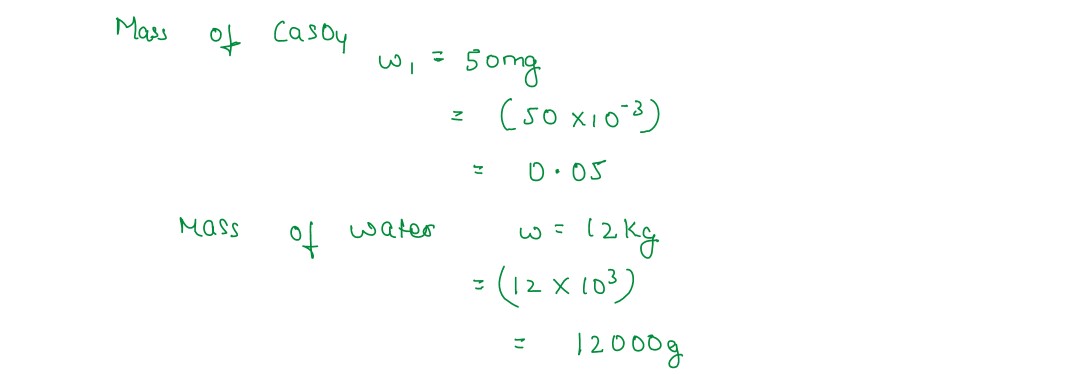 Mass of CaSO4
w₁ = 50mg
= (50 ×10⁻³)
= 0.05
Mass of water w = 12kg
= (12 × 10³)
= 12000g